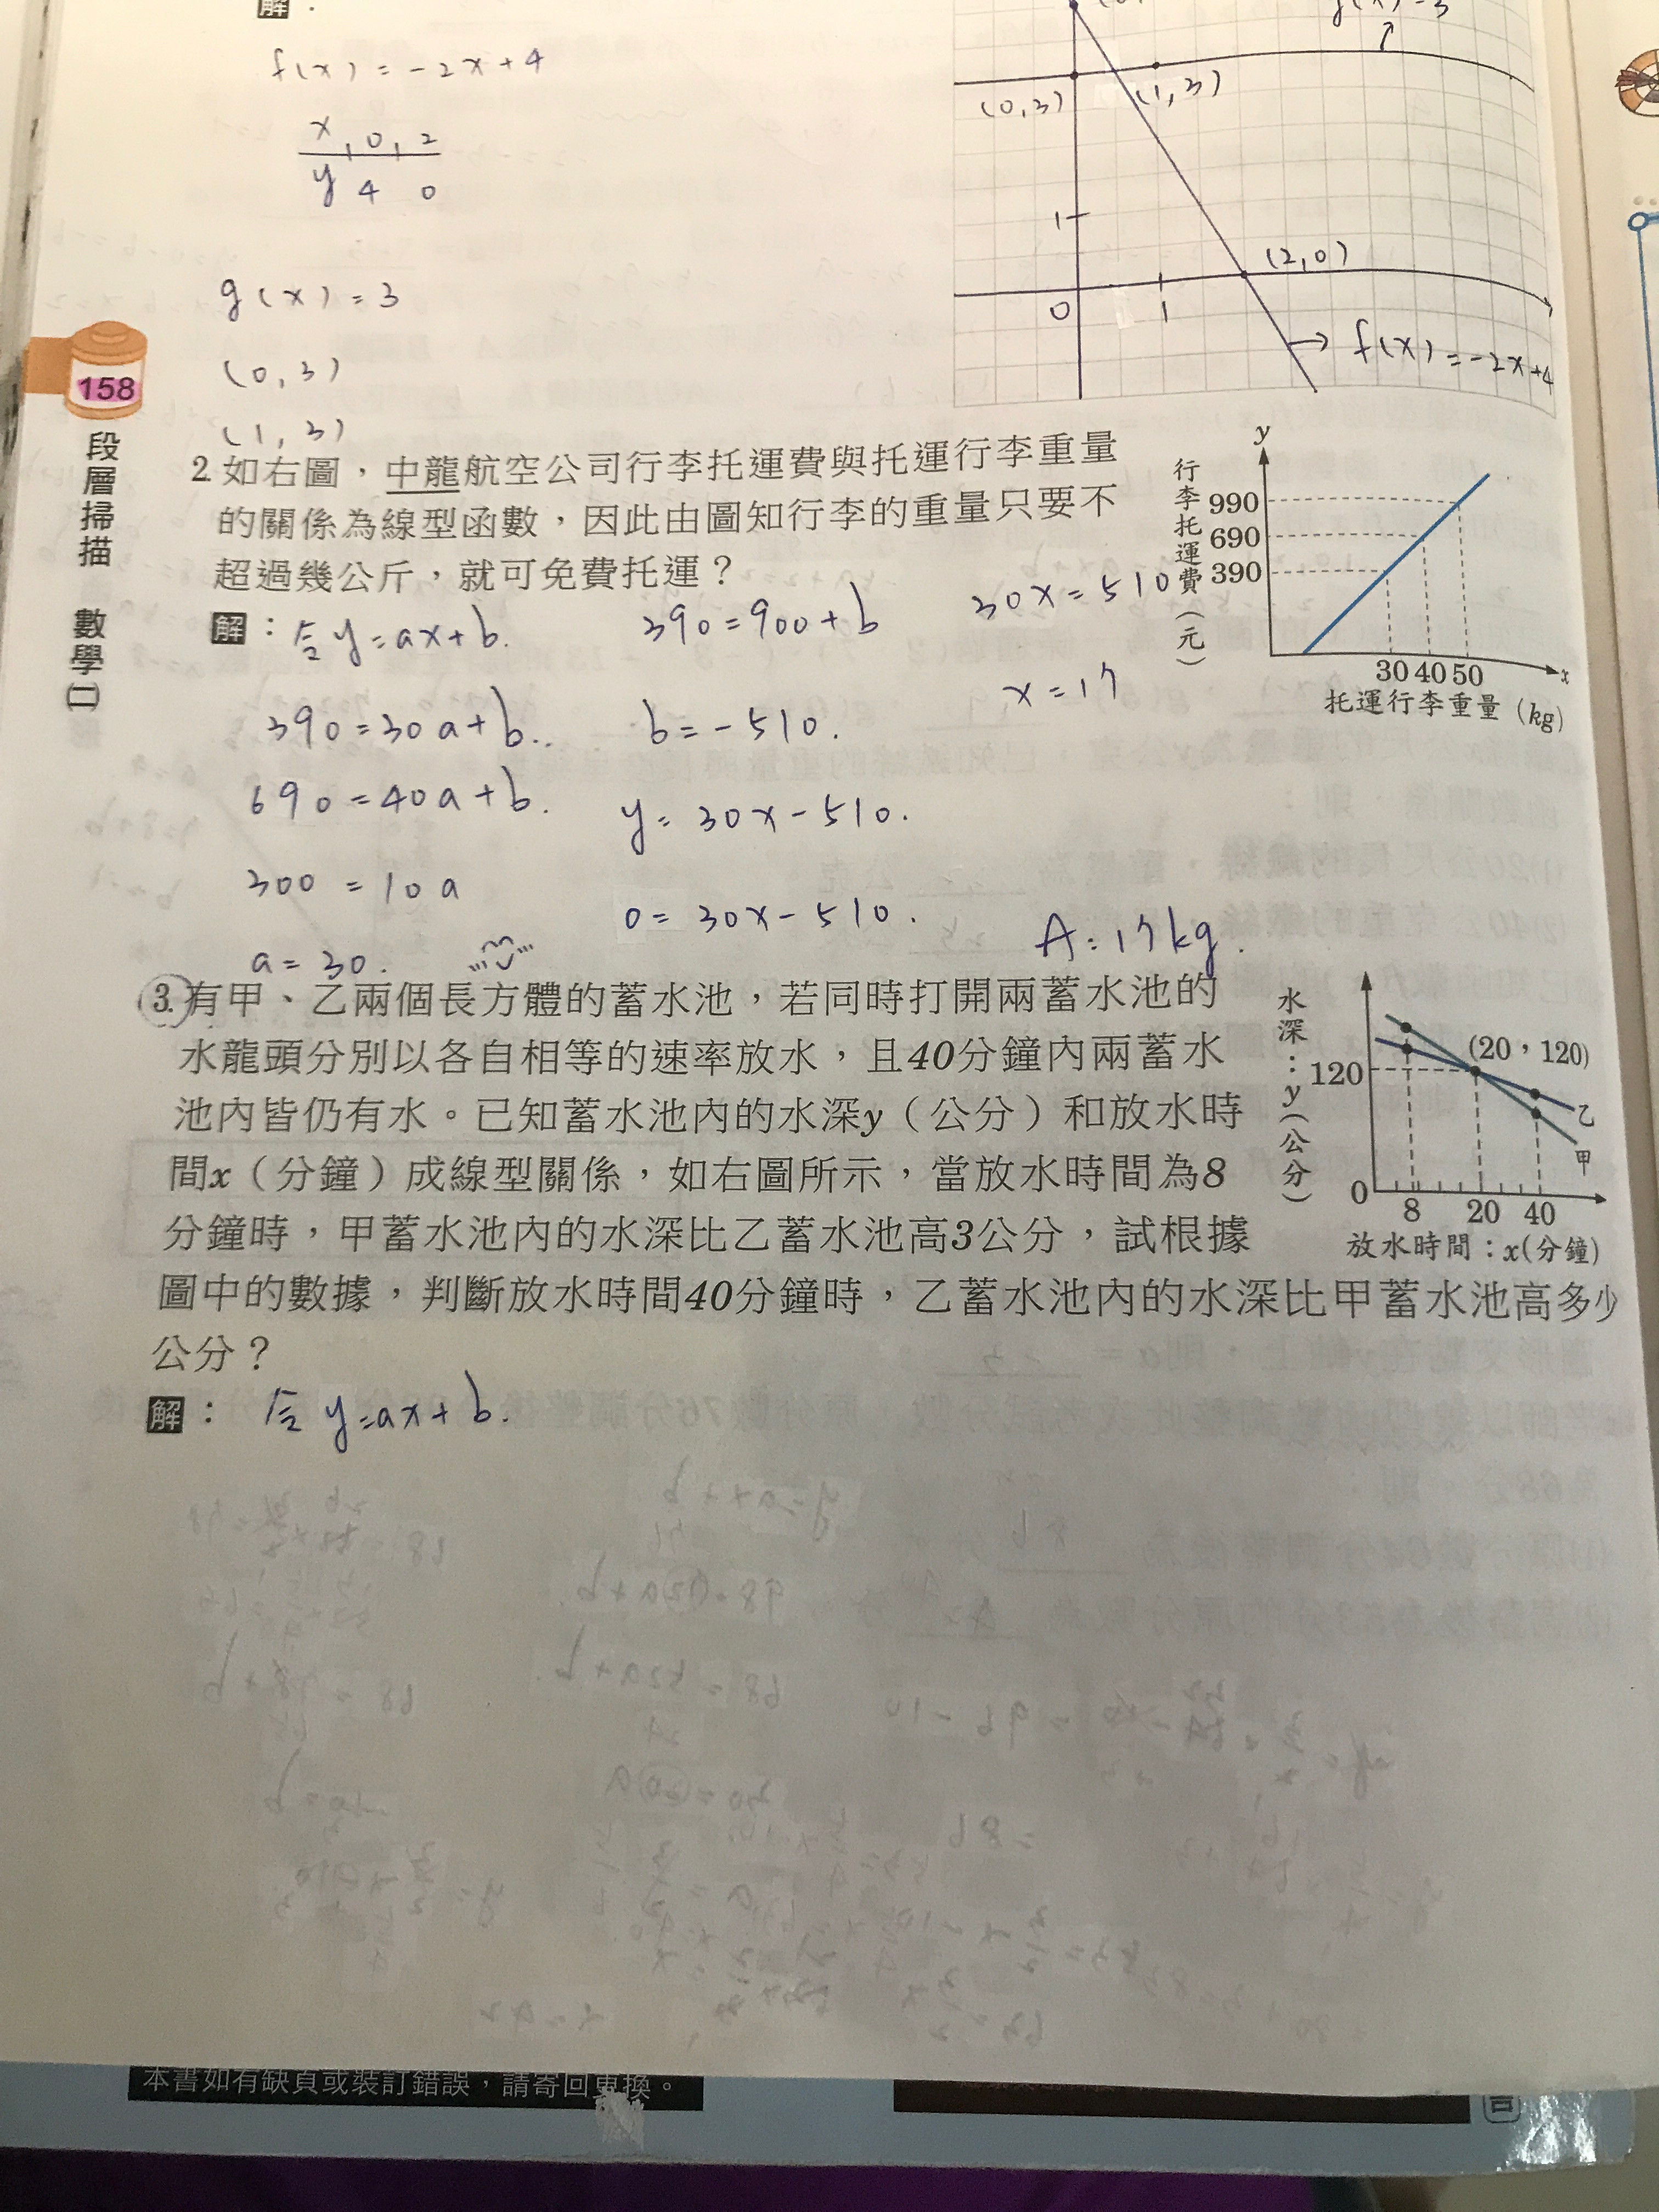 解：
f(x) = -2x+4
x 0 2
y 4 0
g(x) = 3
(0, 3)
(1, 3)
(0, 3)
(1, 3)
1
0
1
(2, 0)
f(x) = -2x+4
158
段層掃描 數學(二)
2. 如右圖，中龍航空公司行李托運費與托運行李重量
的關係為線型函數，因此由圖知行李的重量只要不
超過幾公斤，就可免費托運？
y
行李托運費（元）
990
690
390
30 40 50
x
托運行李重量（kg）
解：令 y = ax+b.
390 = 30a+b..
690 = 40a+b.
300 = 10a
a = 30.
390 = 900+b
b = -510.
y = 30x-510.
0 = 30x-510.
30x = 510
x = 17
A: 17kg.
3. 有甲、乙兩個長方體的蓄水池，若同時打開兩蓄水池的
水龍頭分別以各自相等的速率放水，且40分鐘內兩蓄水
池內皆仍有水。已知蓄水池內的水深y（公分）和放水時
間x（分鐘）成線型關係，如右圖所示，當放水時間為8
分鐘時，甲蓄水池內的水深比乙蓄水池高3公分，試根據
圖中的數據，判斷放水時間40分鐘時，乙蓄水池內的水深比甲蓄水池高多少
公分？
水深：y（公分）
(20，120)
120
乙
甲
0
8 20 40
放水時間：x(分鐘)
解：令 y=ax+b.
本書如有缺頁或裝訂錯誤，請寄回更換。